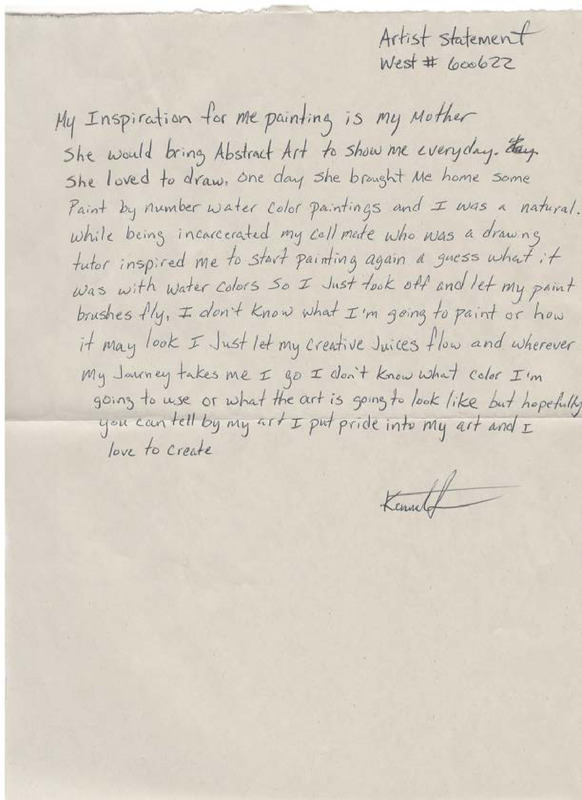 Artist Statement
West # 600622
My Inspiration for me painting is my Mother
She would bring Abstract Art to show me everyday.
She loved to draw. One day she brought Me home some
Paint by number water color paintings and I was a natural.
While being incarcerated my cell mate who was a drawing
tutor inspired me to start painting again a guess what it
was with water colors So I Just took off and let my paint
brushes fly, I don't know what I'm going to paint or how
it may look I Just let my Creative Juices flow and wherever
my Journey takes me I go I don't know what color I'm
going to use or what the art is going to look like but hopefully
you can tell by my art I put pride into my art and I
love to create